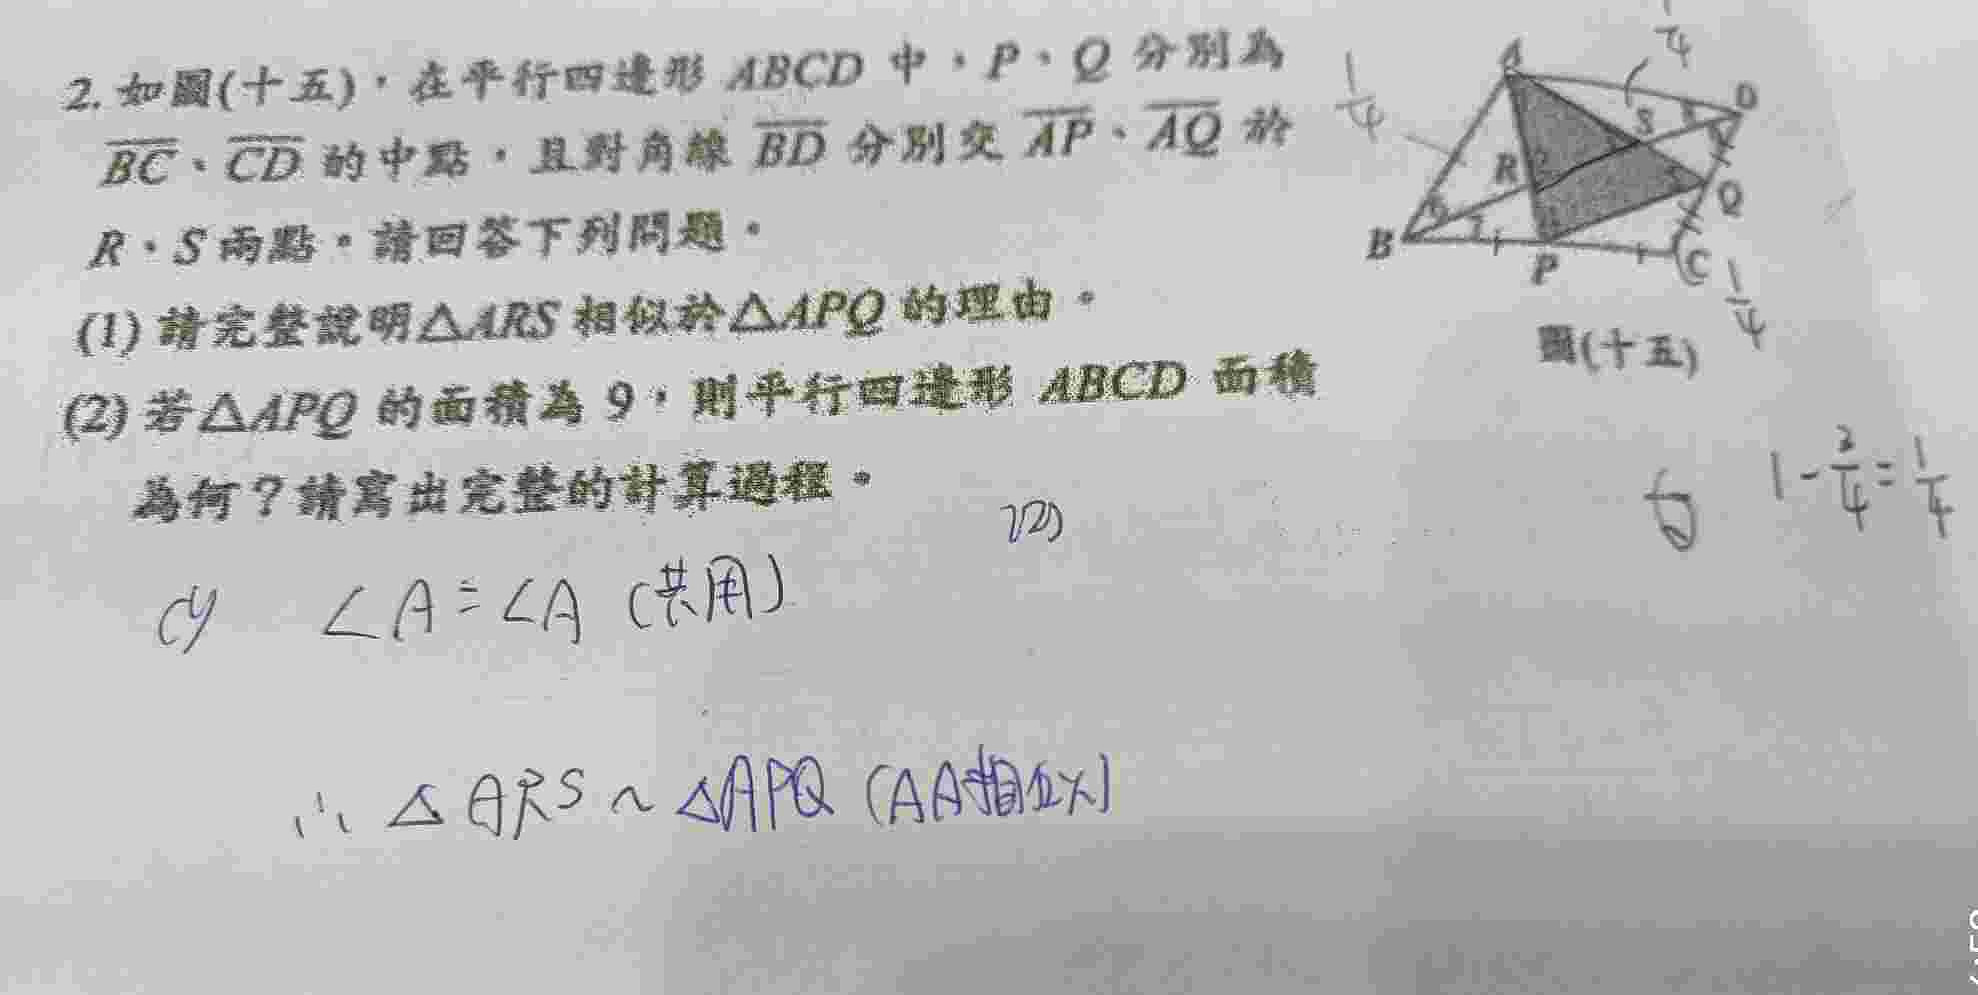 2. 如圖(十五)，在平行四邊形 ABCD 中，P、Q 分別為
BC、CD 的中點，且對角線 BD 分別交 AP、AQ 於
R、S 兩點。請回答下列問題。
(1) 請完整說明△ARS 相似於△APQ 的理由。
(2) 若△APQ 的面積為 9，則平行四邊形 ABCD 面積
為何？請寫出完整的計算過程。
1/4
1/4
A
D
S
R
Q
B
P
C
1/4
圖(十五)
1-3/4=1/4
(2)
(1) ∠A=∠A (共用)
∴ △ARS ~ △APQ (AA相似)